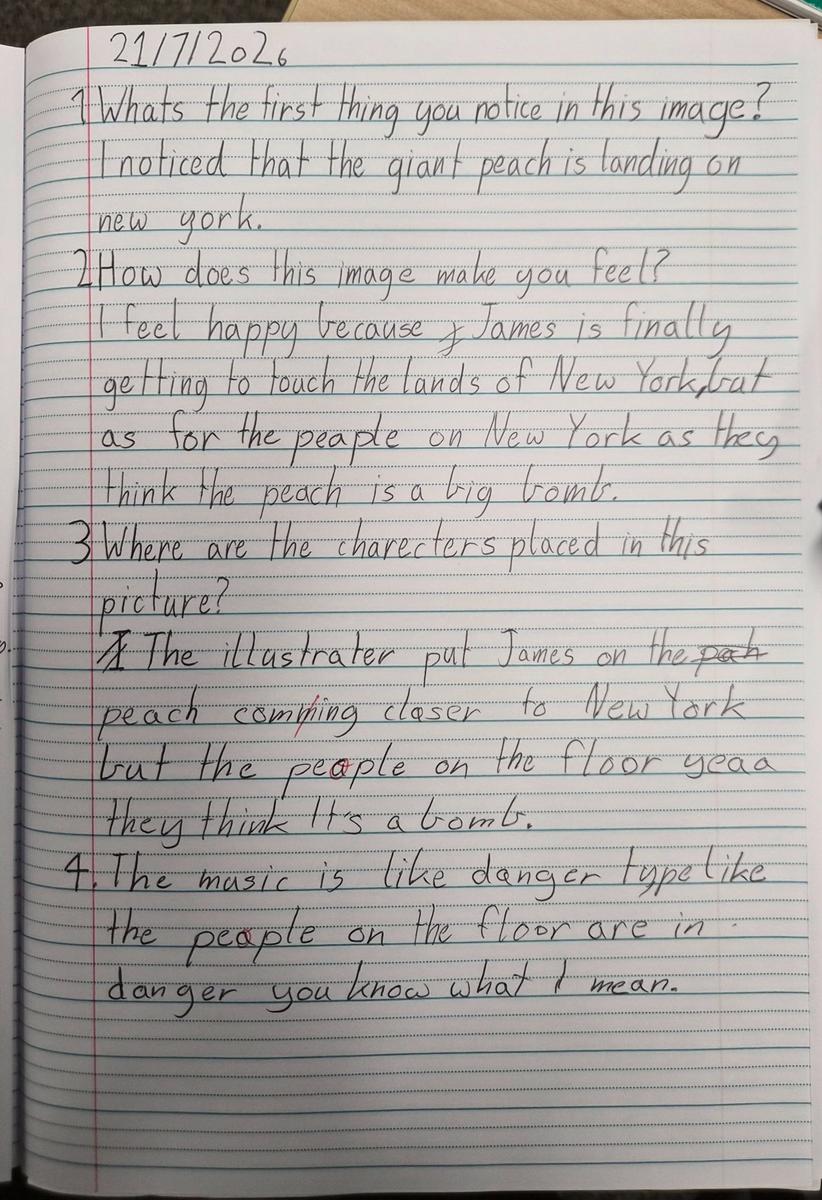 21/7/2026
1 Whats the first thing you notice in this image?
I noticed that the giant peach is landing on
new york.
2 How does this image make you feel?
I feel happy because James is finally
getting to touch the lands of New York, but
as for the peaple on New York as they
think the peach is a big bomb.
3 Where are the charecters placed in this
picture?
The illustrater put James on the pah
peach comming closer to New York
but the peaple on the floor yeaa
they think It's a bomb.
4. The music is like danger type like
the peaple on the floor are in
danger you know what I mean.